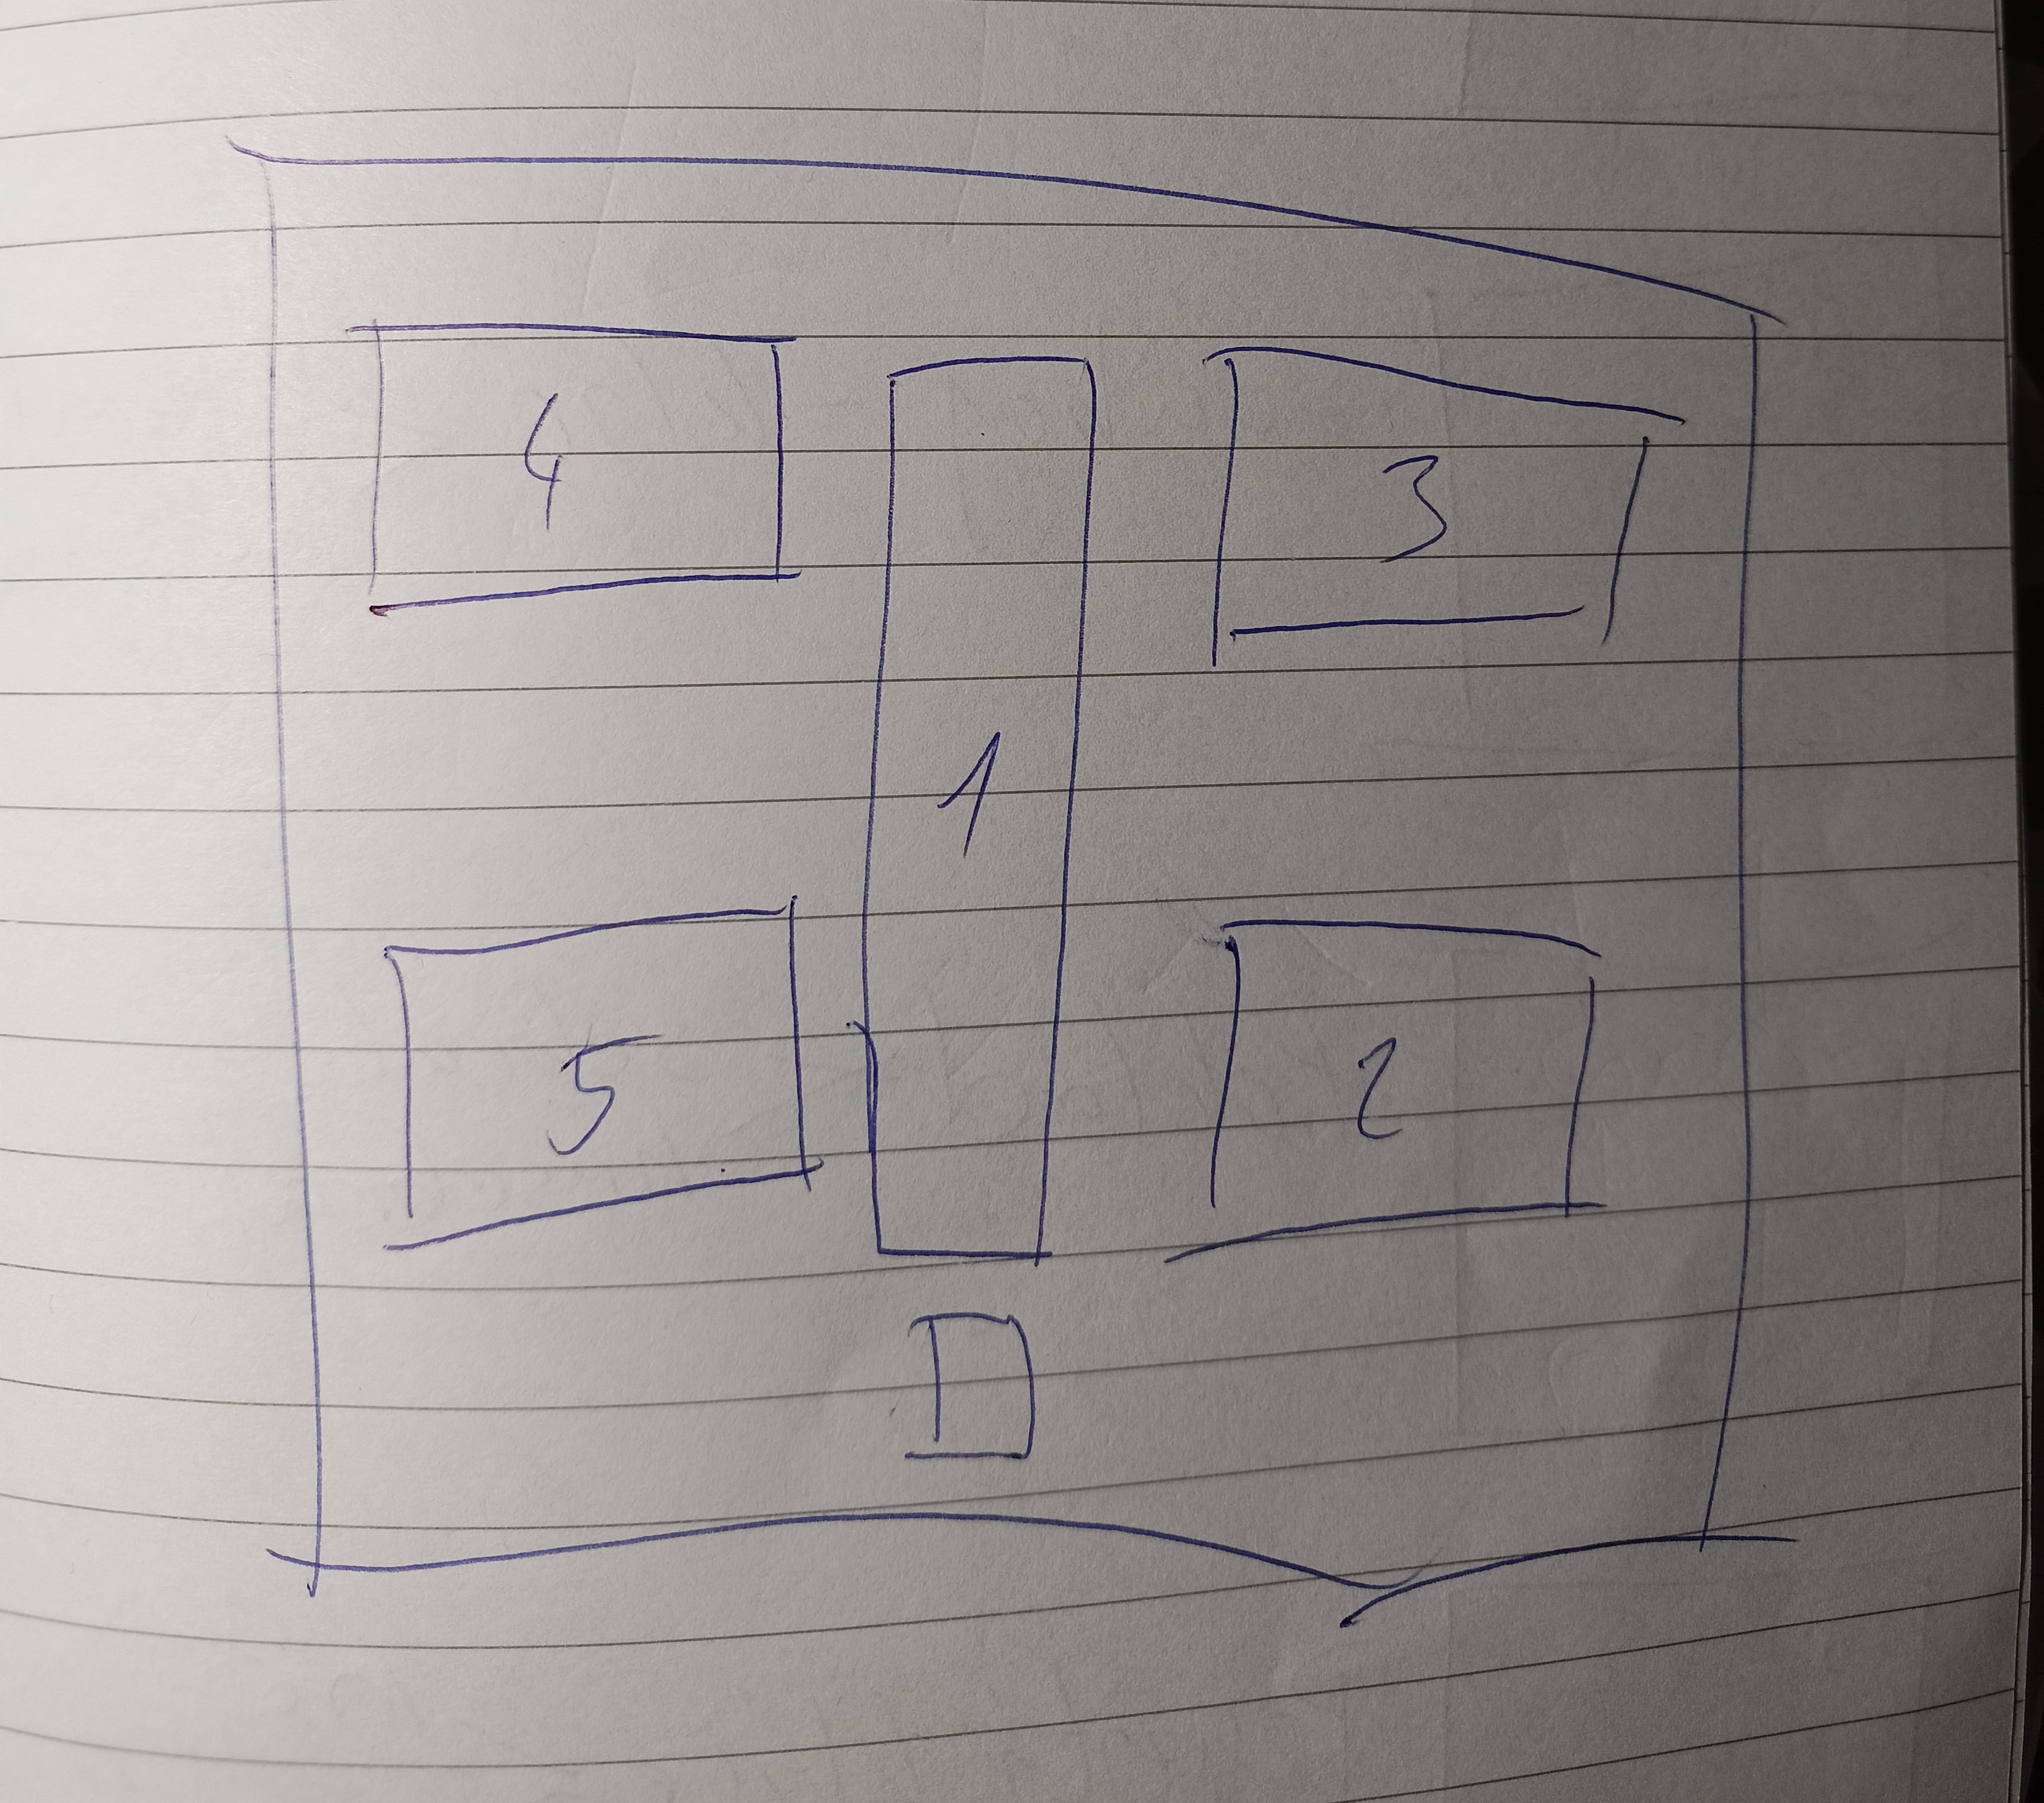 4 3
1
5 2
D